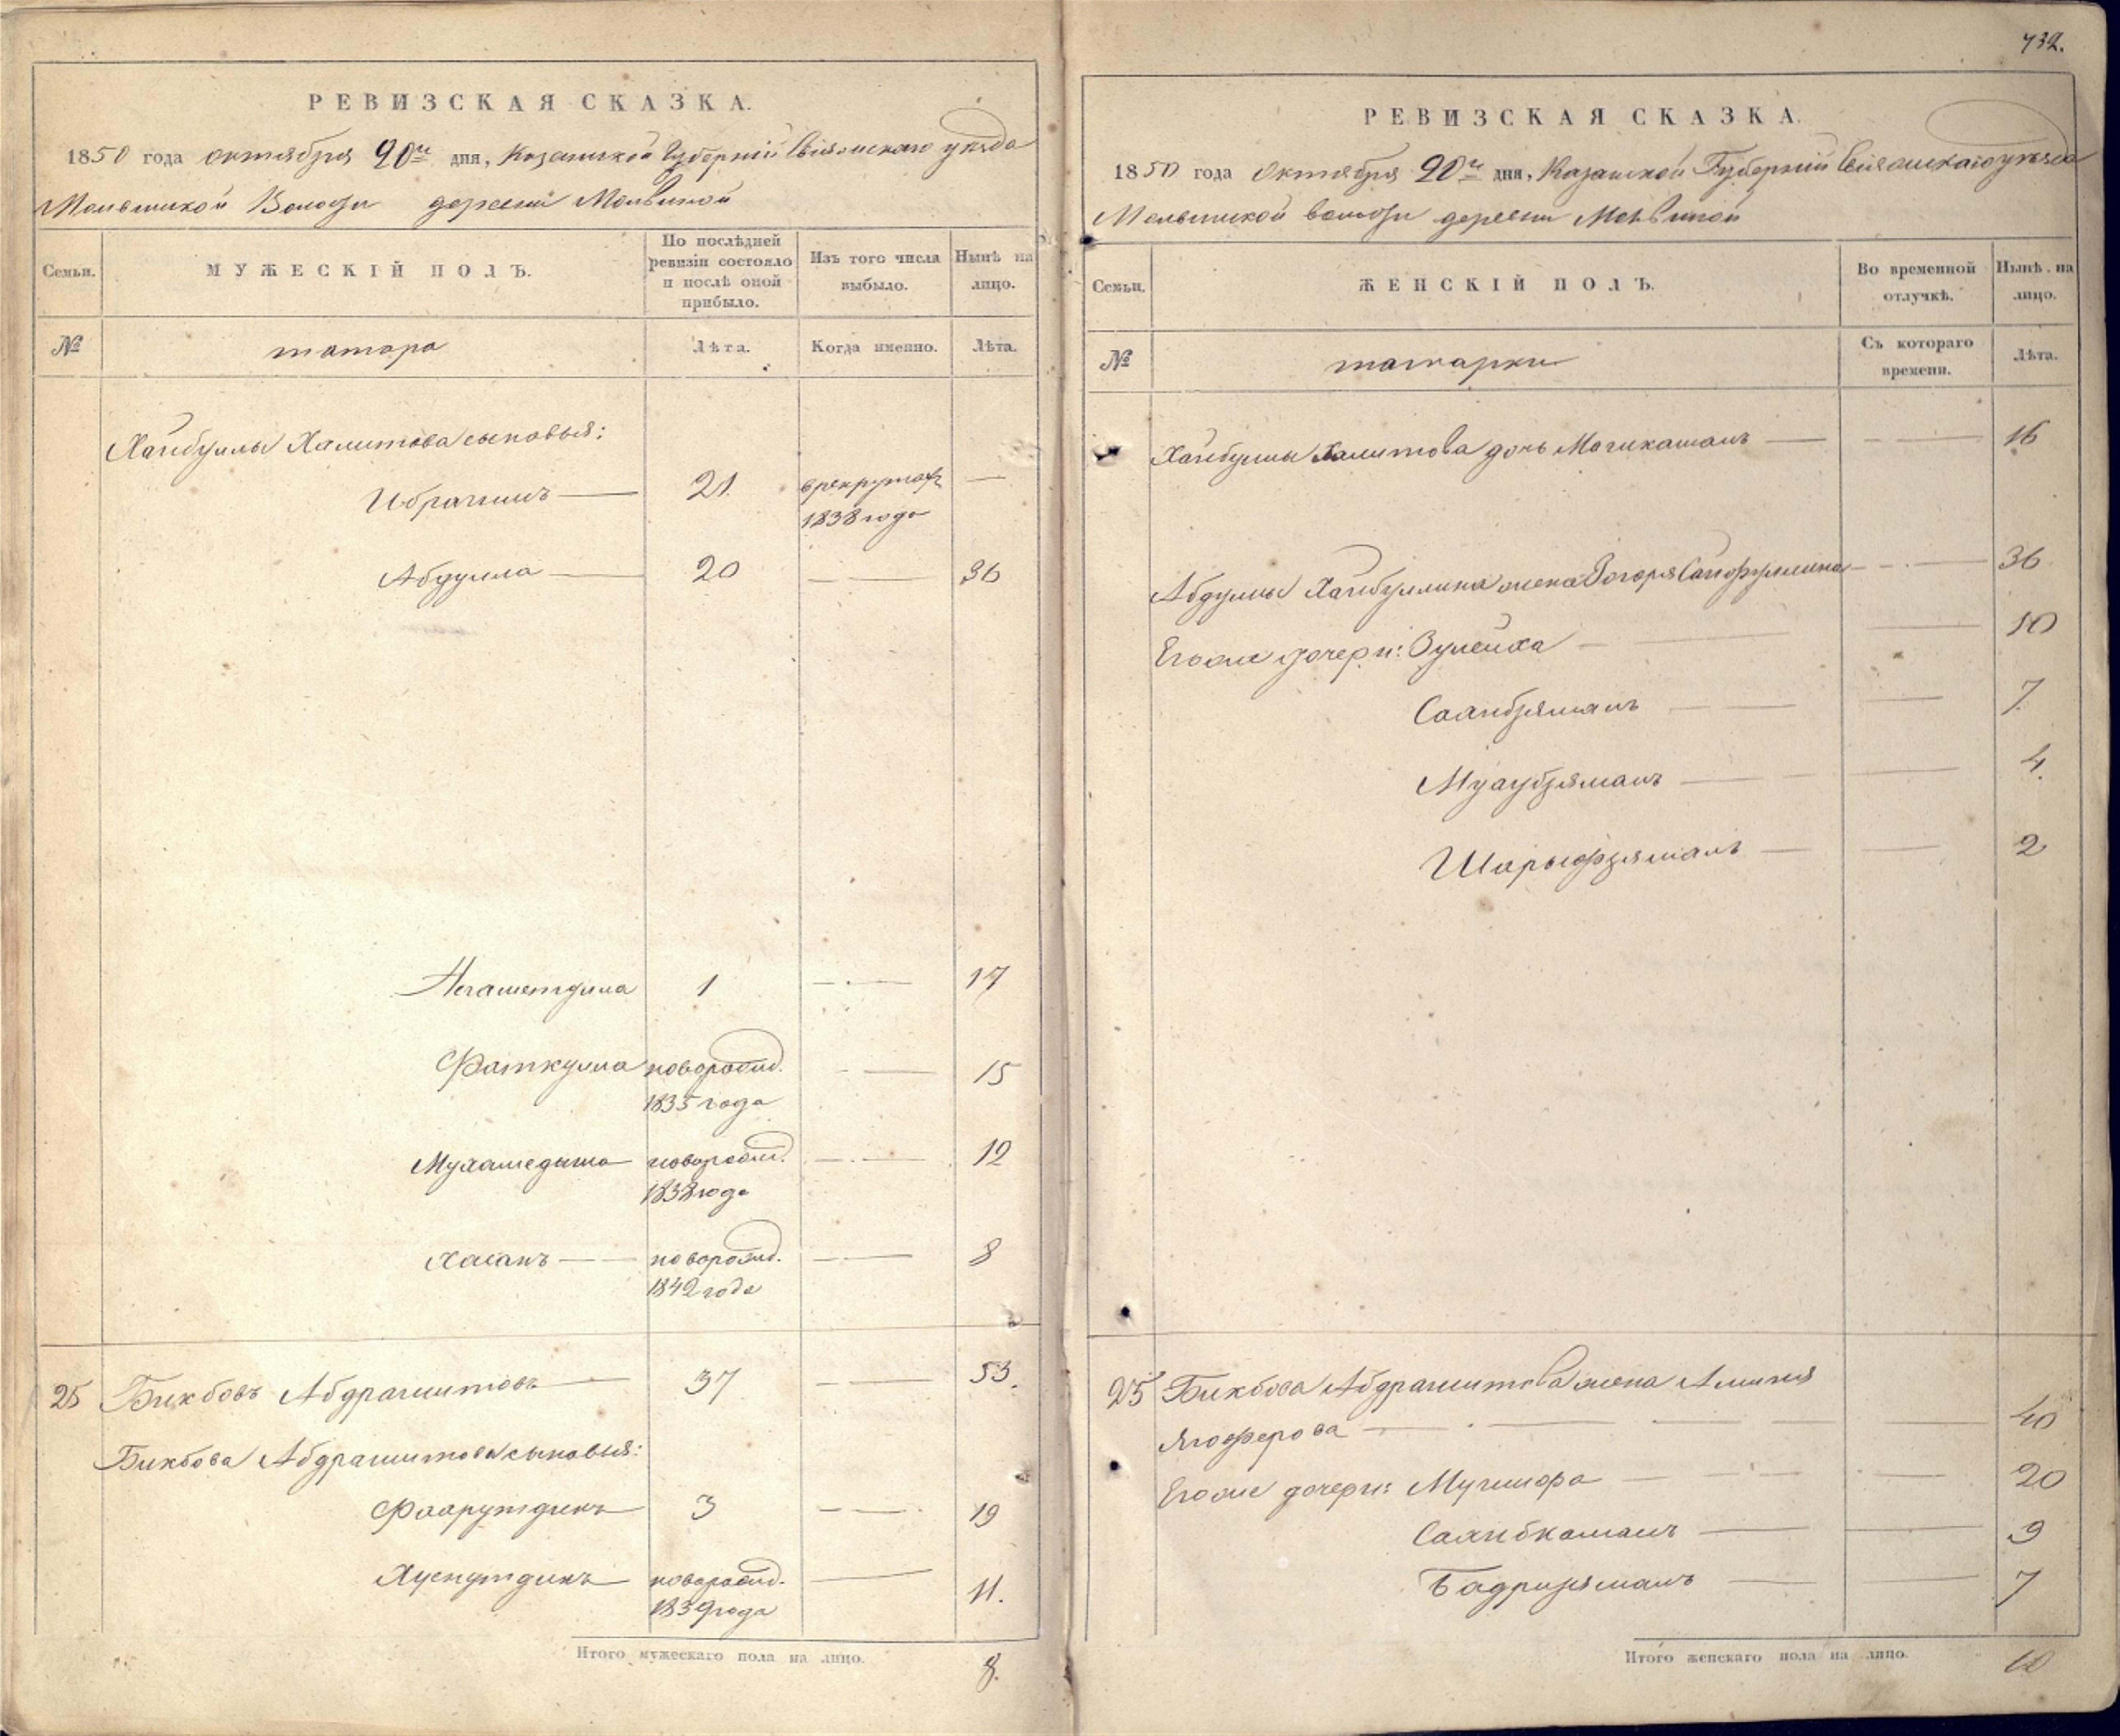 732.
РЕВИЗСКАЯ СКАЗКА.
1850 года октября 20го дня, Казанской Губернии Свіяжскаго уѣзда
волости деревни Молвиной
Семьи.
МУЖЕСКІЙ ПОЛЪ.
По послѣдней ревизіи состояло и послѣ оной прибыло.
Изъ того числа выбыло.
Нынѣ на лицо.
№
татара
Лѣта.
Когда именно.
Лѣта.
Хайбуллы Халитова сыновья:
Ибрагимъ — 21. в рекрутах —
1838 года
Абдулла — 20 — 36
1 — 17
Фаткулла новорожд. — 15
1835 года
новорожд. — 12
1838 года
Хасанъ — новорожд. — 8
1842 года
25 Бикбовъ Абдрашитовъ 37 — 53.
Бикбова Абдрашитова сыновья:
Фахрутдинъ 3 — 19
Хуснутдинъ новорожд. — 11.
1839 года
Итого мужескаго пола на лицо. 8.
РЕВИЗСКАЯ СКАЗКА.
1850 года Октября 20го дня, Казанской Губернии Свіяжскаго уѣзда
волости деревни Молвиной
Семьи.
ЖЕНСКІЙ ПОЛЪ.
Во временной отлучкѣ.
Нынѣ на лицо.
№
татарки
Съ котораго времени.
Лѣта.
Хайбуллы Халитова дочь — — 16
Абдуллы Хайбуллина жена — 36
Его же дочери: Зулейха — — 10
— — 7.
— — 4.
Шарыфзямалъ — — 2
25 Бикбова Абдрашитова жена
Ягоферова — — 40
Его же дочери: — — 20
— — 9
Бадризяманъ — — 7
Итого женскаго пола на лицо. 10